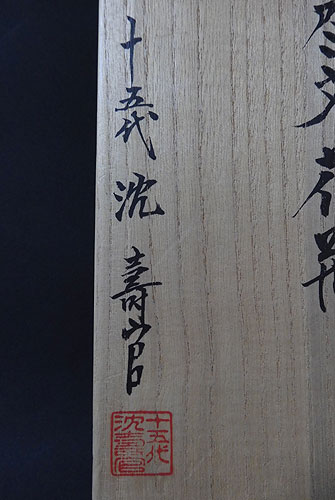 花瓶
十五代 沈 壽官
十五代
沈壽官